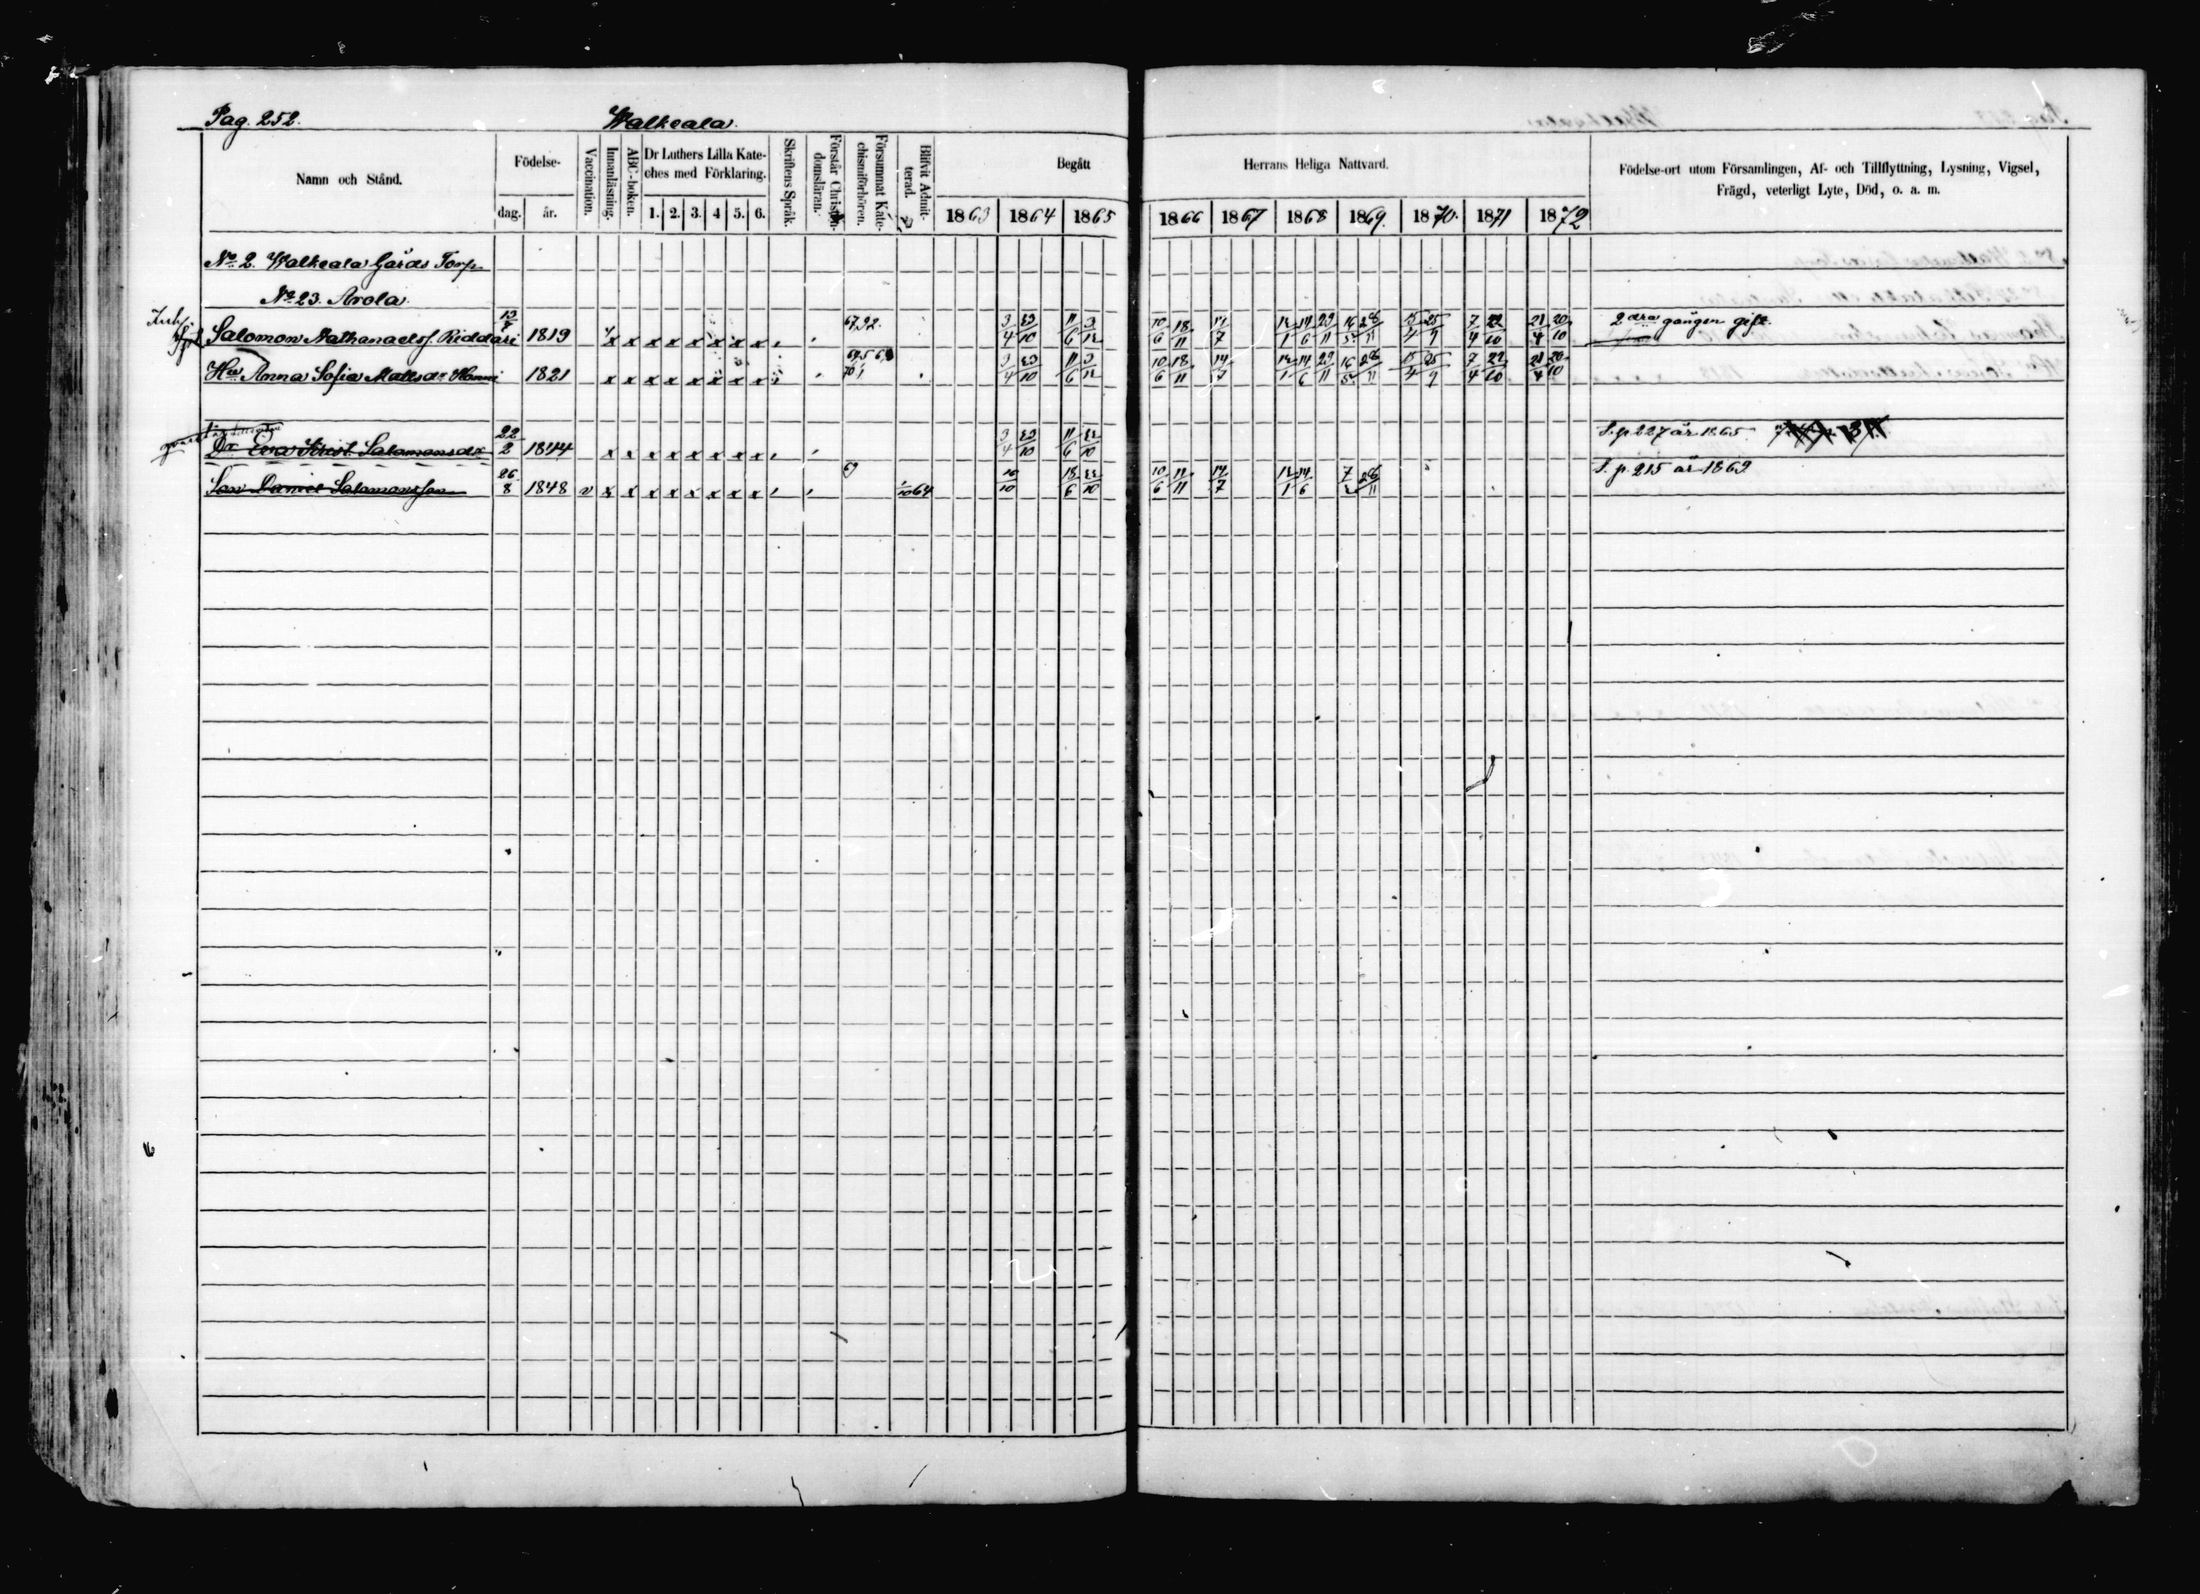 Pag. 252. Walkeala.
Namn och Stånd. Födelse- dag. år. Vaccination. Innanläsning. ABC-boken. Dr Luthers Lilla Kateches med Förklaring. 1. 2. 3. 4 5. 6. Skriftens Språk. Förstår Christendomsläran. Försummat Katechismiförhören. Blifvit Admitterad. Begått Herrans Heliga Nattvard. Födelse-ort utom Församlingen, Af- och Tillflyttning, Lysning, Vigsel, Frägd, veterligt Lyte, Död, o. a. m.
1863 1864 1865 1866 1867 1868 1869. 1870. 1871 1872
No 2. Walkeala Gårds Torp
No 23. Arola.
Salomon Nathanaelsf. Riddari 13/7 1819 x x x x x x x x 67,92. 3/4 23/10 11/6 3/12 10/6 18/11 14/7 12/1 14/6 29/11 16/5 28/11 15/4 25/9 7/4 22/10 21/4 20/10 2dra gången gift.
Hu Anna Sofia Mattsdr 1821 x x x x x x x x 3/4 23/10 11/6 3/12 10/6 18/11 14/7 12/1 14/6 29/11 16/5 28/11 15/4 25/9 7/4 22/10 21/4 20/10
Dr Eva Krist. Salomonsdr 22/2 1844 x x x x x x x x 3/4 23/10 11/6 S. p. 227 år 1865
Son Daniel Salomonsson 26/8 1848 v x x x x x x x x 69 1/10 64 18/6 10/6 11/11 14/7 12/1 14/6 28/11 S. p. 215 år 1869